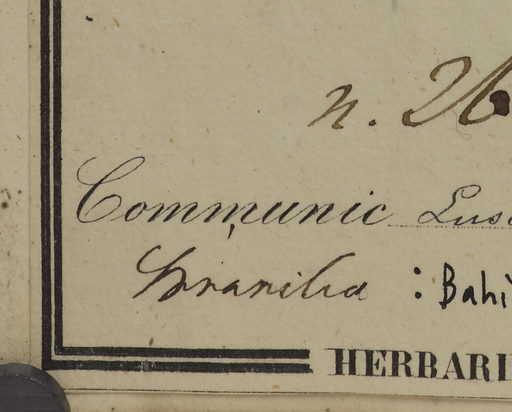 n. 26
Communic Lus
Brasilia : Bahi
HERBARI